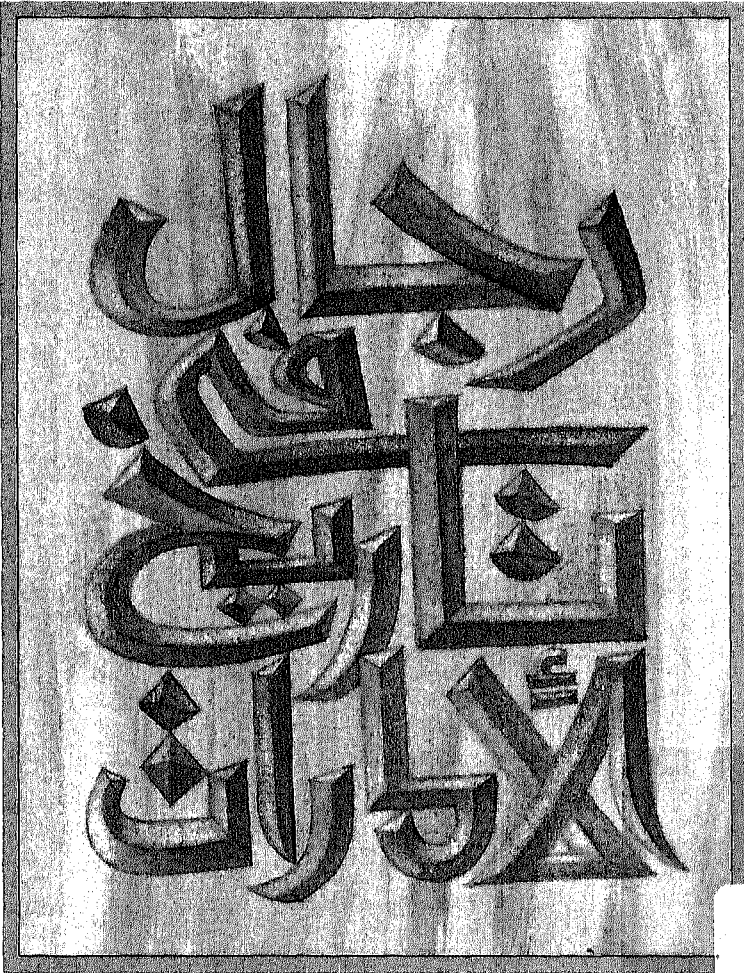 رجال
في تاريخ
الإمارات